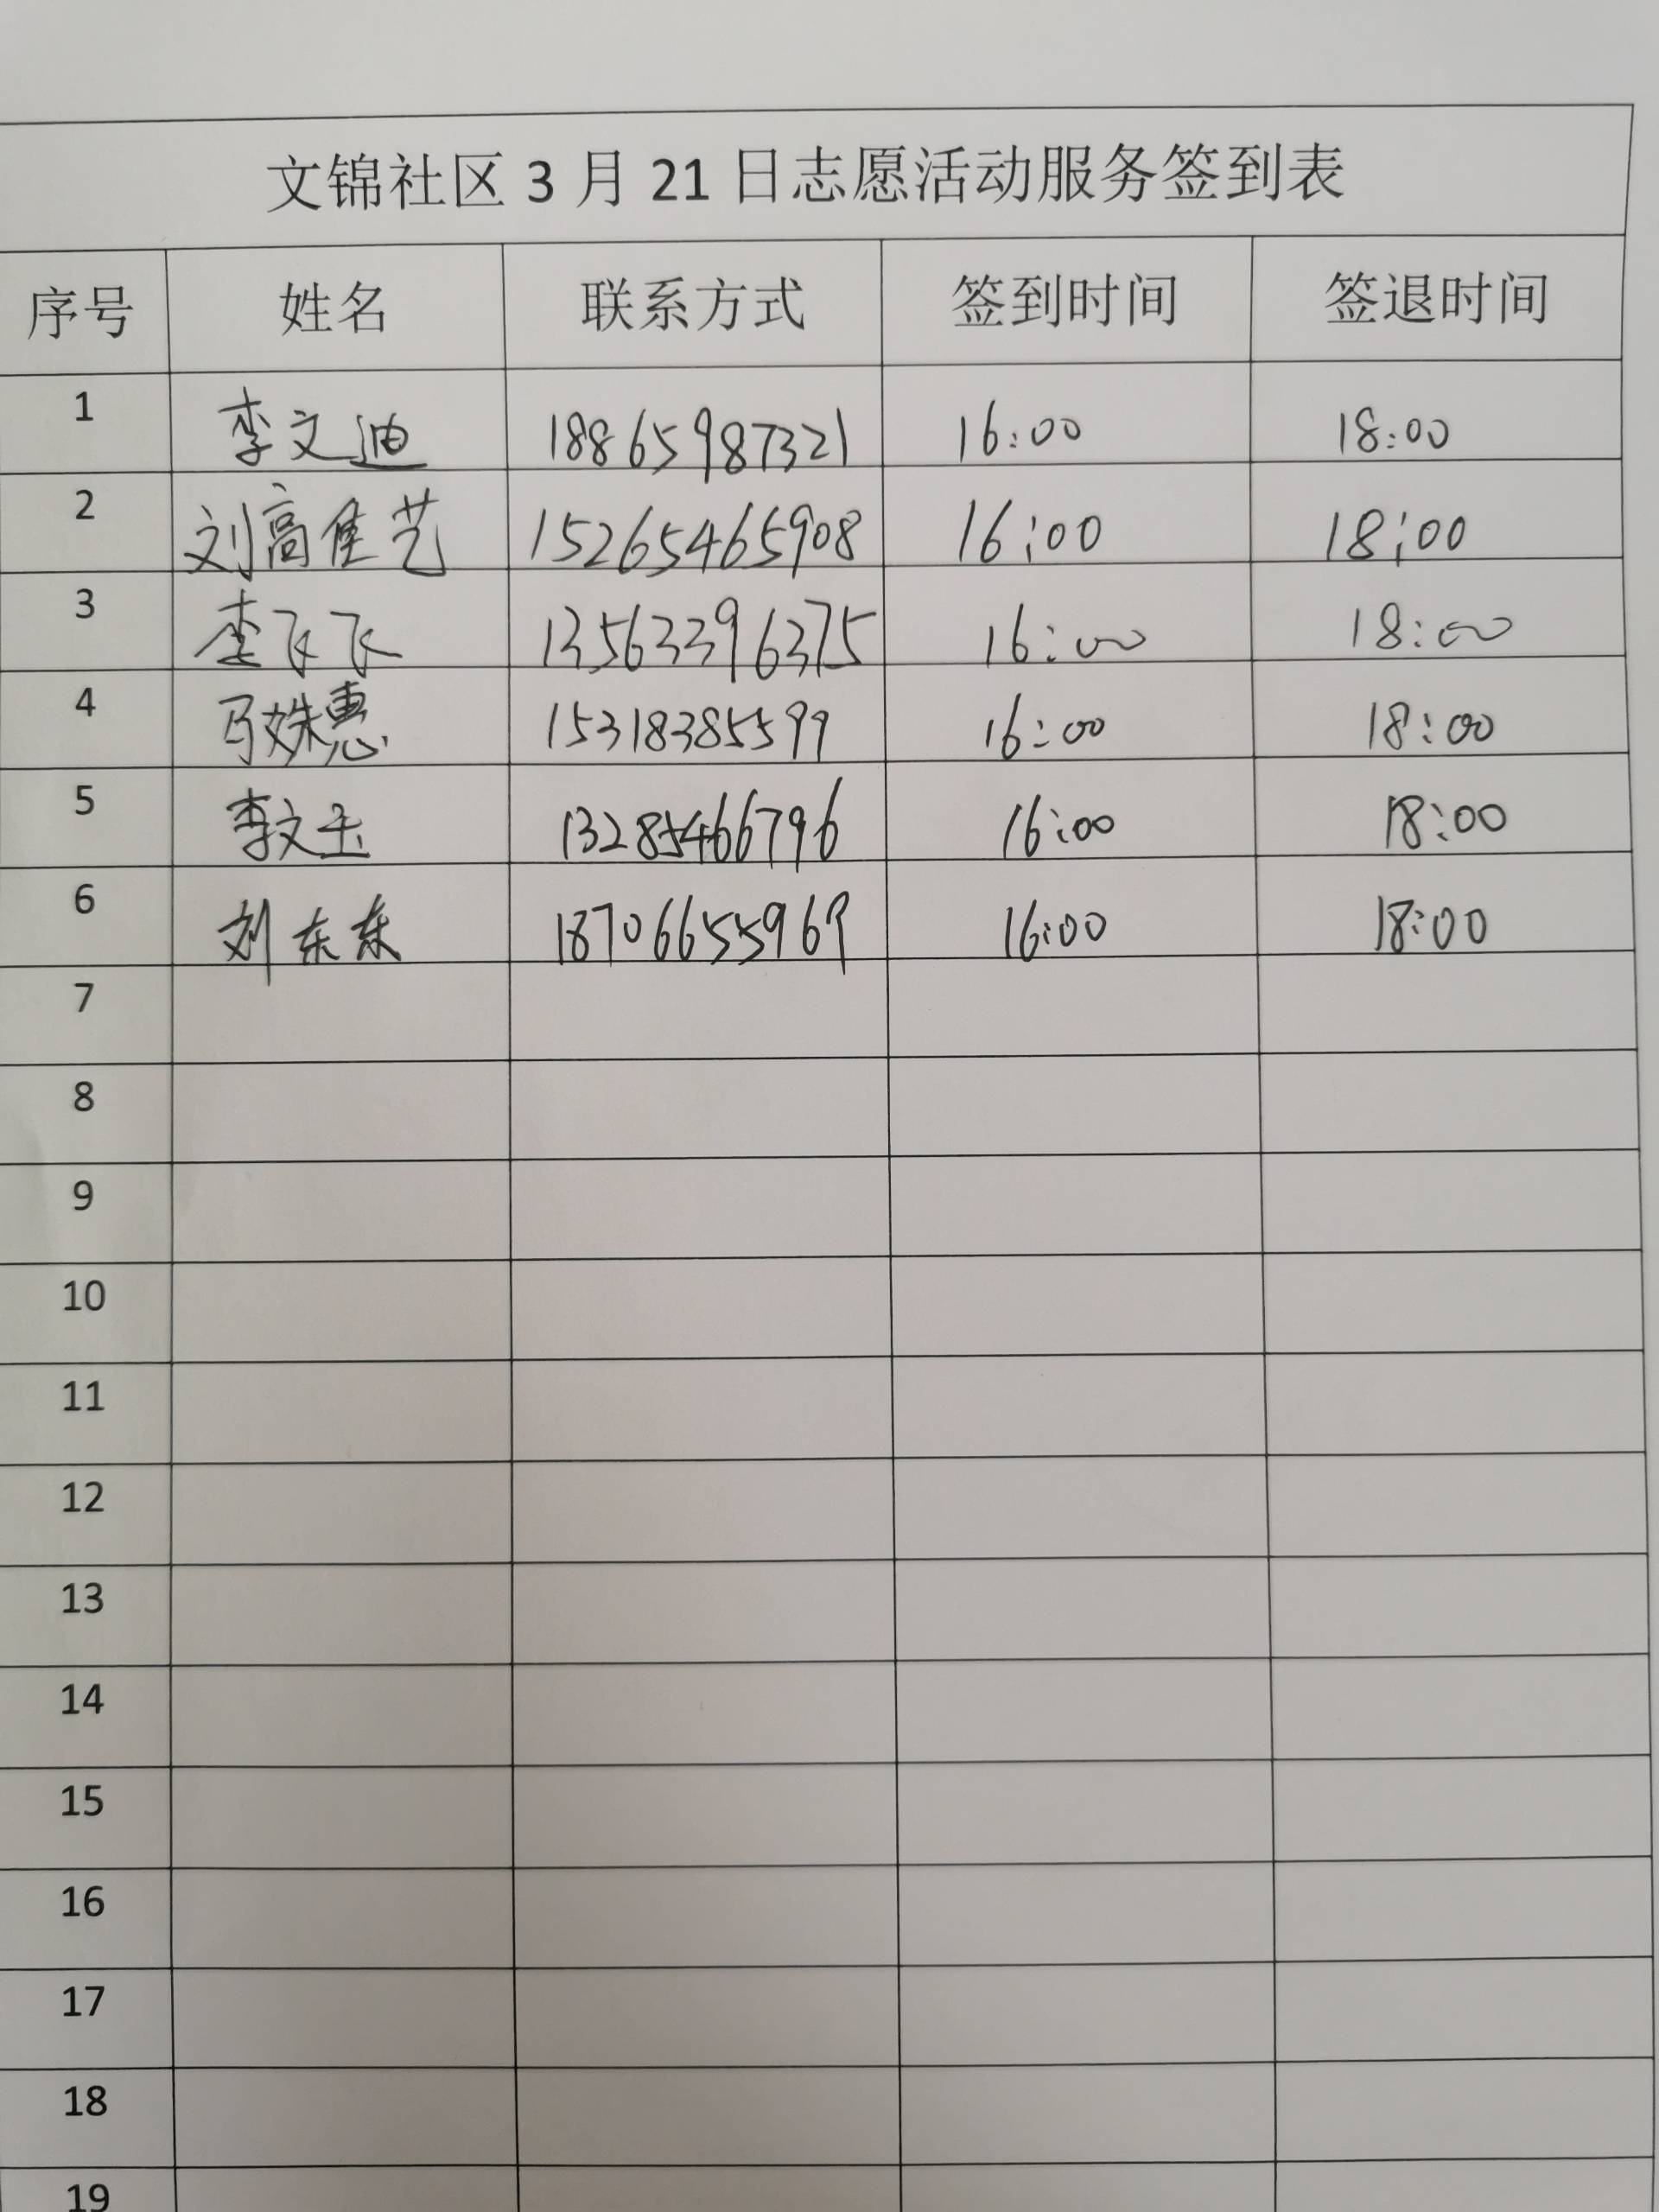 文锦社区 3 月 21 日志愿活动服务签到表
序号 姓名 联系方式 签到时间 签退时间
1 李文迪 18865987321 16:00 18:00
2 刘高佳艺 15265465908 16:00 18:00
3 李飞飞 13563396375 16:00 18:00
4 马姝惠 15318385599 16:00 18:00
5 李文玉 13285466796 16:00 18:00
6 刘东东 18706655969 16:00 18:00
7
8
9
10
11
12
13
14
15
16
17
18
19